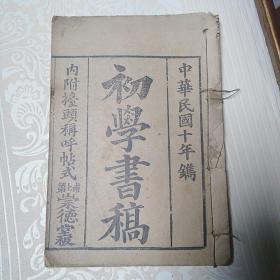 中華民國十年鐫
初學書稿
內附擡頭稱呼帖式
崇德堂